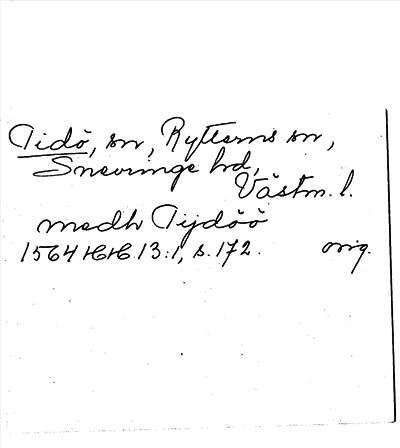 Tidö, sn, Rytterns sn,
Snevringe hd,
Västm. l.
medh Tijdöö
1564 HH. 13:1, s. 172. orig.